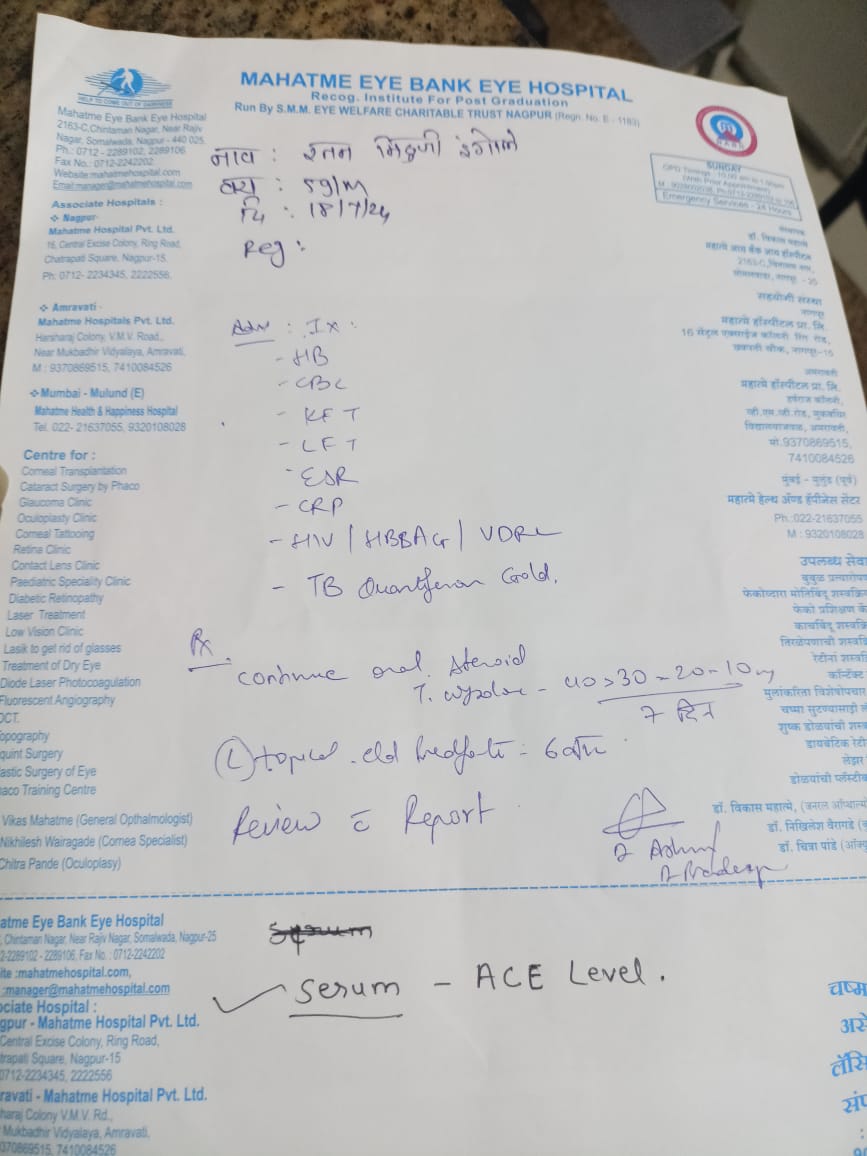 HELP TO COME OUT OF DARKNESS
MAHATME EYE BANK EYE HOSPITAL
Recog. Institute For Post Graduation
Run By S.M.M. EYE WELFARE CHARITABLE TRUST NAGPUR (Regn. No. E - 1183)
Mahatme Eye Bank Eye Hospital
2163-C, Chintaman Nagar, Near Rajiv
Nagar, Somalwada, Nagpur - 440 025.
Ph.: 0712 - 2289102, 2289106
Fax No.: 0712-2242202
Website:mahatmehospital.com
Email:manager@mahatmehospital.com
Associate Hospitals :
❖ Nagpur-
Mahatme Hospital Pvt. Ltd.
16, Central Excise Colony, Ring Road,
Chatrapati Square, Nagpur-15.
Ph: 0712- 2234345, 2222556.
❖ Amravati -
Mahatme Hospitals Pvt. Ltd.
Harsharaj Colony, V.M.V. Road,
Near Mukbadhir Vidyalaya, Amravati.
M : 9370869515, 7410084526
❖Mumbai - Mulund (E)
Mahatme Health & Happiness Hospital
Tel. 022- 21637055, 9320108028
Centre for :
Corneal Transplantation
Cataract Surgery by Phaco
Glaucoma Clinic
Oculoplasty Clinic
Corneal Tattooing
Retina Clinic
Contact Lens Clinic
Paediatric Speciality Clinic
Diabetic Retinopathy
Laser Treatment
Low Vision Clinic
Lasik to get rid of glasses
Treatment of Dry Eye
Diode Laser Photocoagulation
Fluorescent Angiography
OCT.
opography
quint Surgery
astic Surgery of Eye
aco Training Centre
Vikas Mahatme (General Opthalmologist)
Nikhilesh Wairagade (Cornea Specialist)
Chitra Pande (Oculoplasy)
SUNDAY
Emergency Services - 24 Hours
डॉ. विकास महात्मे
महात्मे आय बँक आय हॉस्पीटल
सहयोगी संस्था
नागपूर
महात्मे हॉस्पीटल प्रा. लि.
16 सेंट्रल एक्साईज कॉलनी रिंग रोड,
छत्रपती चौक, नागपूर-15
अमरावती
महात्मे हॉस्पीटल प्रा. लि.
हर्षराज कॉलनी,
व्ही.एम.व्ही.रोड, मुकबधिर
विद्यालयाजवळ, अमरावती,
मो.9370869515,
7410084526
मुंबई - मुलुंड (पूर्व)
महात्मे हेल्थ अँण्ड हॅपीनेस सेंटर
Ph.:022-21637055
M : 9320108028
उपलब्ध सेवा
नाव :
वय : 59/M
दि : 18/7/24
Reg :
Adv : Ix :
- HB
- CBC
- KFT
- LFT
- ESR
- CRP
- HIV / HBsAG / VDRL
- TB Quantiferon Gold.
Rx.
continue oral steroid
T. wysolone - 40>30-20-10mg
7 दिन
(L) topical
Review c̄ Report
डॉ. विकास महात्मे,
डॉ. निखिलेश वैरागडे
डॉ. चित्रा पांडे
atme Eye Bank Eye Hospital
, Chintaman Nagar, Near Rajiv Nagar, Somalwada, Nagpur-25
2-2289102 - 2289106, Fax No. : 0712-2242202
ite :mahatmehospital.com,
:manager@mahatmehospital.com
ociate Hospital :
gpur - Mahatme Hospital Pvt. Ltd.
Central Excise Colony, Ring Road,
trapati Square, Nagpur-15
0712-2234345, 2222556
ravati - Mahatme Hospital Pvt. Ltd.
haraj Colony V.M.V. Rd.,
Mukbadhir Vidyalaya, Amravati.
370869515, 7410084526
Serum - ACE Level.
चष्म
असे
लॅसि
संप